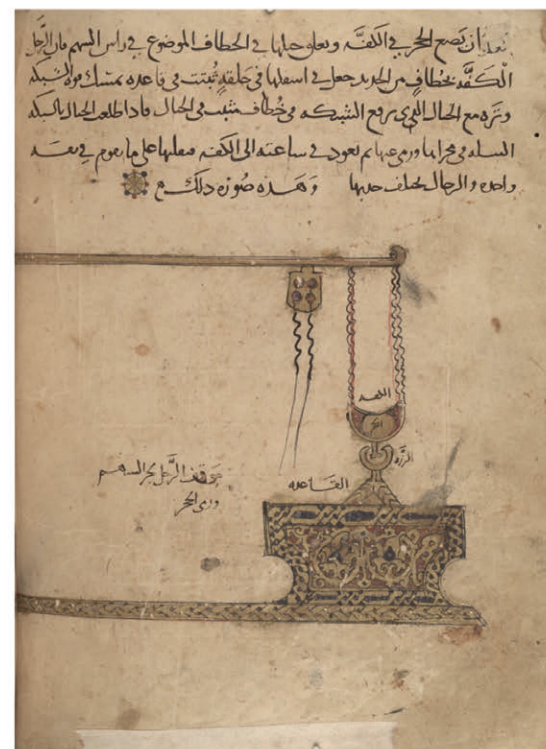 بعد ان يضع الحجر في الكفه ويعلق حبلها في الخطاف الموضوع في راس السهم فان الرجل
الكفه بخطاف من الحديد جعل في اسفلها في حلقه تثبت في قاعده تمسك قوه الشبكه
وتره مع الحبال التي ترفع الشبكه في خطاف مثبت في الحبال فاذا طلعت الحبال بالشبكه
في مجراها ورمى عنها ثم تعود في ساعته الى الكفه على ما يقوم في بعد
واحده والرجال بخلف وهذه صوره ذلك
الكفه
الحجر
الرزه
القاعده
موقف الرجل يجر السهم
ورمى الحجر